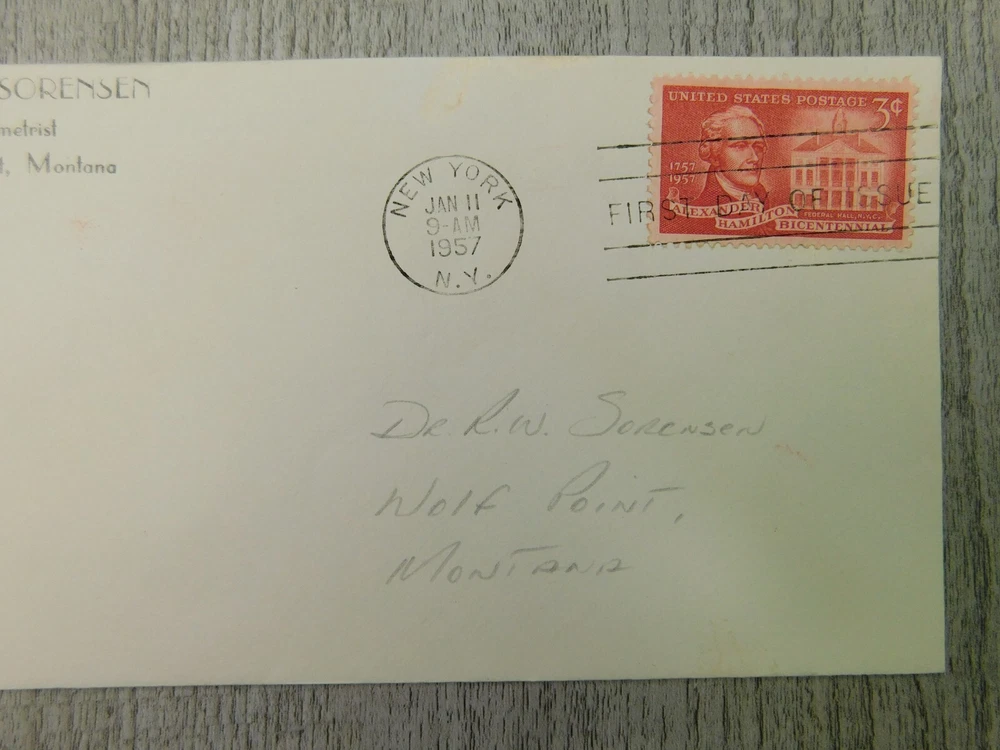 SORENSEN
metrist
t, Montana
UNITED STATES POSTAGE 3¢
1757
1957
ALEXANDER
HAMILTON
BICENTENNIAL
FEDERAL HALL, N.Y.C.
NEW YORK
JAN 11
9-AM
1957
N.Y.
FIRST DAY OF ISSUE
DR. R.W. SORENSEN
WOLF POINT,
MONTANA